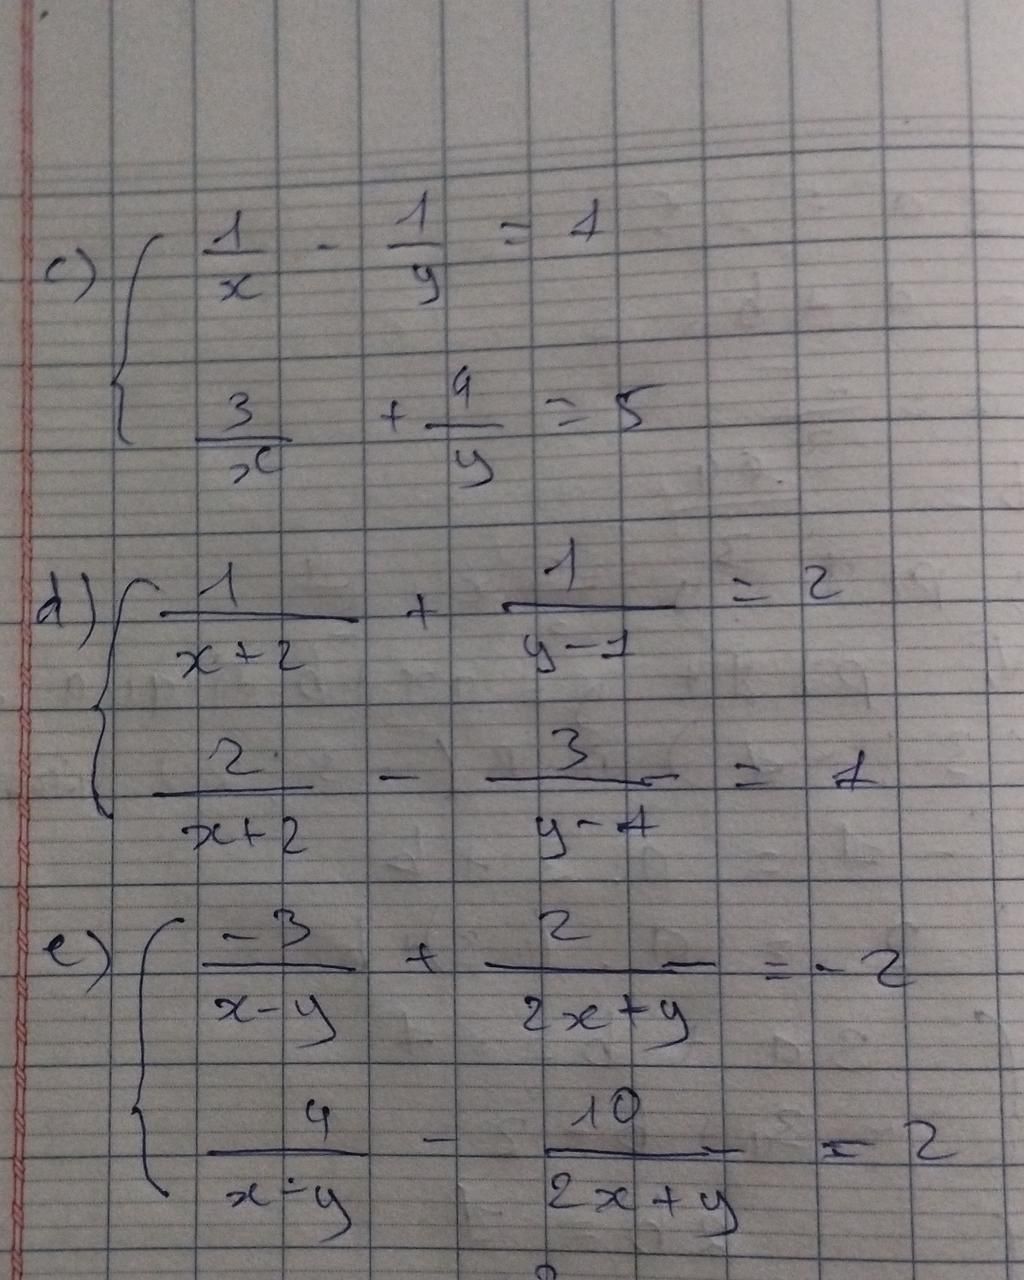 c) { 1/x - 1/y = 1
3/x + 4/y = 5
d) { 1/(x+2) + 1/(y-1) = 2
2/(x+2) - 3/(y-1) = 1
e) { -3/(x-y) + 2/(2x+y) = -2
4/(x-y) - 10/(2x+y) = 2